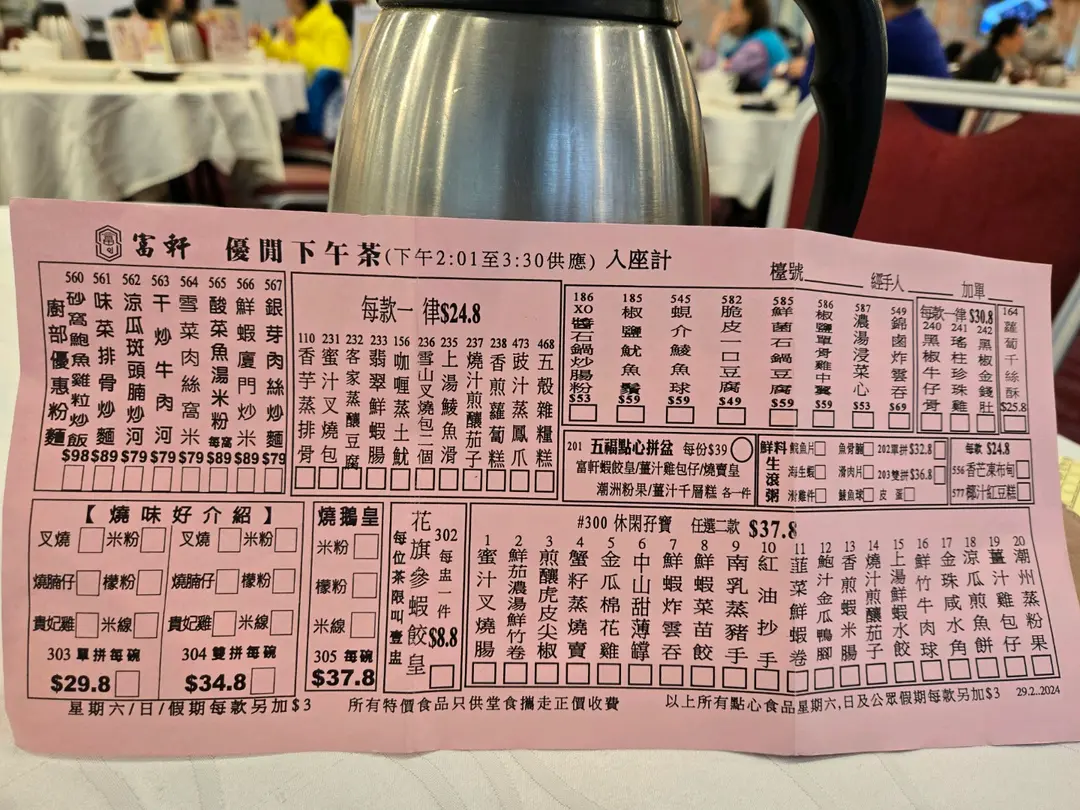 富軒 優閒下午茶(下午2:01至3:30供應) 入座計
檯號 經手人 加單
廚部優惠粉麵
560 砂窩鮑魚雞粒炒飯 $98
561 味菜排骨炒麵 $89
562 涼瓜斑頭腩炒河 $79
563 干炒牛肉河 $79
564 雪菜肉絲窩米 $79
565 酸菜魚湯米粉 每窩 $89
566 鮮蝦廈門炒米 $89
567 銀芽肉絲炒麵 $79
每款一律$24.8
110 香芋蒸排骨
231 蜜汁叉燒包
232 客家蒸釀豆腐
233 翡翠鮮蝦腸
156 咖喱蒸土魷
236 雪山叉燒包二個
235 上湯鯪魚滑
237 燒汁煎釀茄子
238 香煎蘿蔔糕
473 豉汁蒸鳳爪
468 五殼雜糧糕
186 XO醬石鍋炒腸粉 $53
185 椒鹽魷魚鬚 $59
545 蜆介鯪魚球 $59
582 脆皮一口豆腐 $49
585 鮮菌石鍋豆腐 $59
586 椒鹽單骨雞中翼 $59
587 濃湯浸菜心 $53
549 錦鹵炸雲吞 $69
每款一律$30.8
240 黑椒牛仔骨
241 瑤柱珍珠雞
242 黑椒金錢肚
164 蘿蔔千絲酥 $25.8
201 五福點心拼盆 每份$39
富軒蝦餃皇/薑汁雞包仔/燒賣皇
潮洲粉果/薑汁千層糕 各一件
鮮料生滾粥
鯇魚片 魚骨腩 202單拼$32.8
海生蝦 滑肉片 203雙拼$36.8
滑雞件 鯪魚球 皮蛋
每款 $24.8
556 香芒凍布甸
577 椰汁紅豆糕
【燒味好介紹】
叉燒 米粉 叉燒 米粉
燒腩仔 檬粉 燒腩仔 檬粉
貴妃雞 米線 貴妃雞 米線
303 單拼每碗 304 雙拼每碗
$29.8 $34.8
燒鵝皇
米粉
檬粉
米線
305 每碗
$37.8
302 花旗參蝦餃皇
每盅一件 $8.8
每位茶限叫壹盅
#300 休閑孖寶 任選二款 $37.8
1 蜜汁叉燒腸
2 鮮茄濃湯鮮竹卷
3 煎釀虎皮尖椒
4 蟹籽蒸燒賣
5 金瓜棉花雞
6 中山甜薄罉
7 鮮蝦炸雲吞
8 鮮蝦菜苗餃
9 南乳蒸豬手
10 紅油抄手
11 韮菜鮮蝦卷
12 鮑汁金瓜鴨腳
13 香煎蝦米腸
14 燒汁煎釀茄子
15 上湯鮮蝦水餃
16 鮮竹牛肉球
17 金珠咸水角
18 涼瓜煎魚餅
19 薑汁雞包仔
20 潮州蒸粉果
星期六/日/假期每款另加$3 所有特價食品只供堂食攜走正價收費 以上所有點心食品星期六,日及公眾假期每款另加$3 29.2..2024